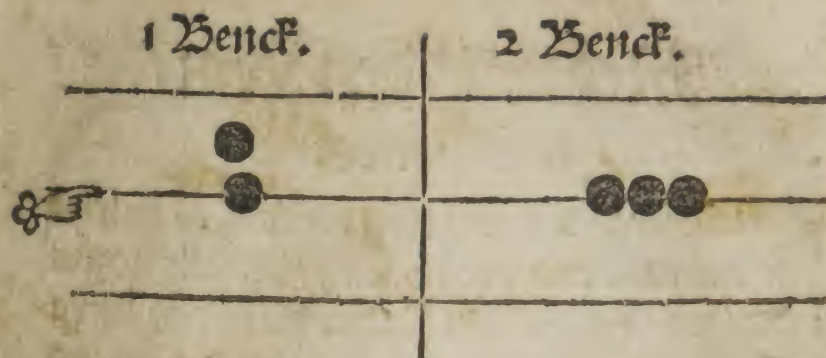 1 Benck. 2 Benck.